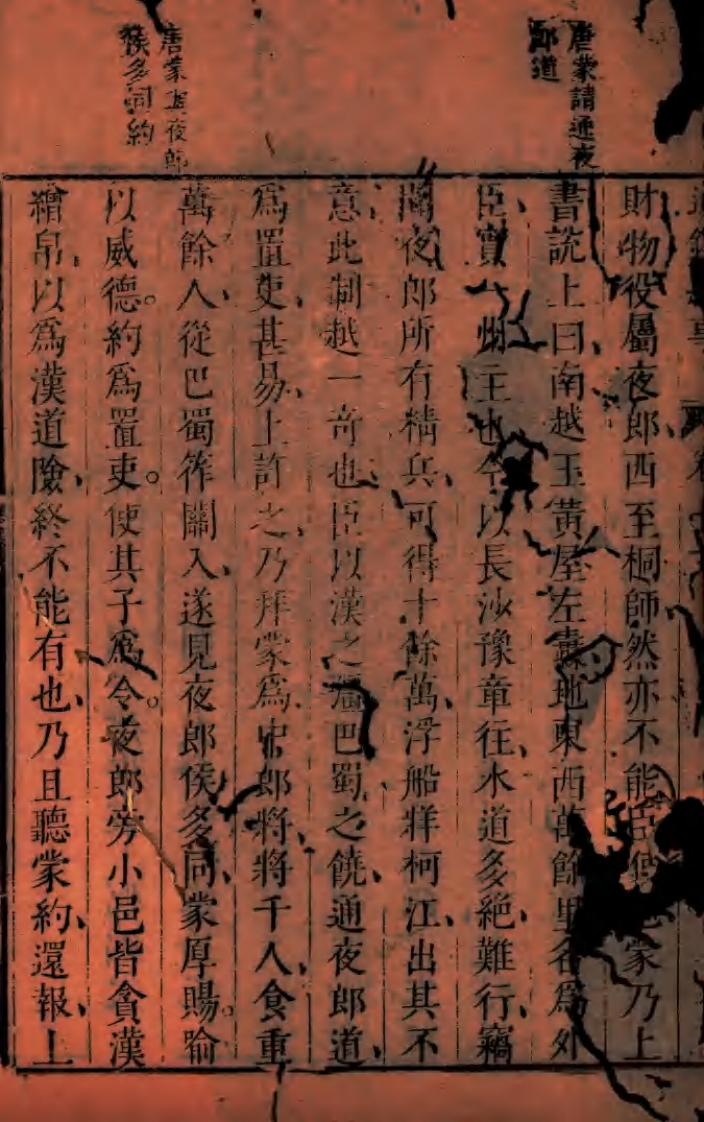 唐蒙請通夜
郎道
唐蒙夜郎
侯多同約
財物役屬夜郎西至桐師然亦不能臣使也蒙乃上
書說上曰南越王黃屋左纛地東西萬餘里名爲外
臣實一州主也今以長沙豫章往水道多絕難行竊
聞夜郎所有精兵可得十餘萬浮船牂柯江出其不
意此制越一奇也臣以漢之彊巴蜀之饒通夜郎道
爲置吏甚易上許之乃拜蒙爲中郎將將千人食重
萬餘人從巴蜀筰關入遂見夜郎侯多同蒙厚賜喻
以威德約爲置吏使其子爲令夜郎旁小邑皆貪漢
繒帛以爲漢道險終不能有也乃且聽蒙約還報上